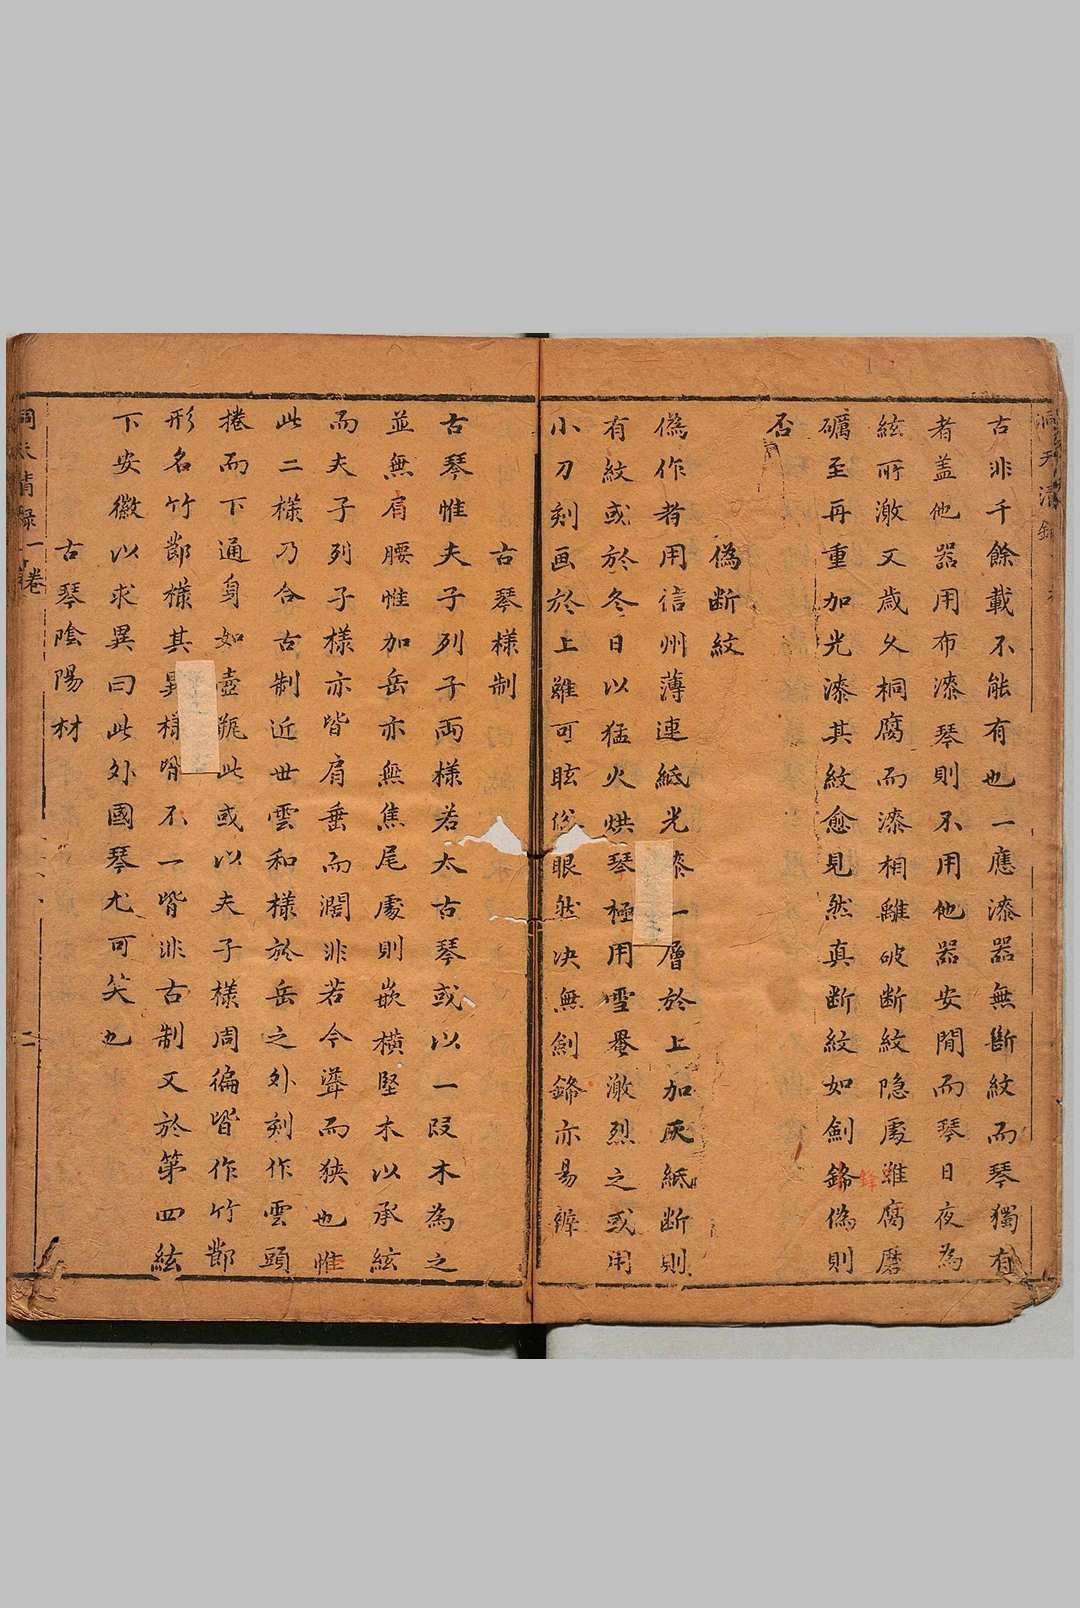 洞天清錄
古非千餘載不能有也一應漆器無斷紋而琴獨有
者盖他器用布漆琴則不用他器安閒而琴日夜為
絃所激又歲久桐腐而漆相離破断紋隐處雖腐磨
礪至再重加光漆其紋愈見然真断紋如劍鋒偽則
鋒
否
偽断紋
偽作者用信州薄連紙光漆一層於上加灰紙断則
有紋或於冬日以猛火烘琴極用雪罨激烈之或用
小刀刻画於上雖可眩俗眼然决無劍鋒亦易辨
古琴様制
古琴惟夫子列子両様若太古琴或以一段木為之
並無肩腰惟加岳亦無焦尾處則嵌横堅木以承絃
而夫子列子様亦皆肩垂而濶非若今聳而狭也惟
此二様乃合古制近世雲和様於岳之外刻作雲頭
捲而下通身如壺瓶此或以夫子様周徧皆作竹節
形名竹節様其異様皆不一皆非古制又於第四絃
下安徽以求異曰此外國琴尤可笑也
古琴陰陽材
洞天清錄一卷 二